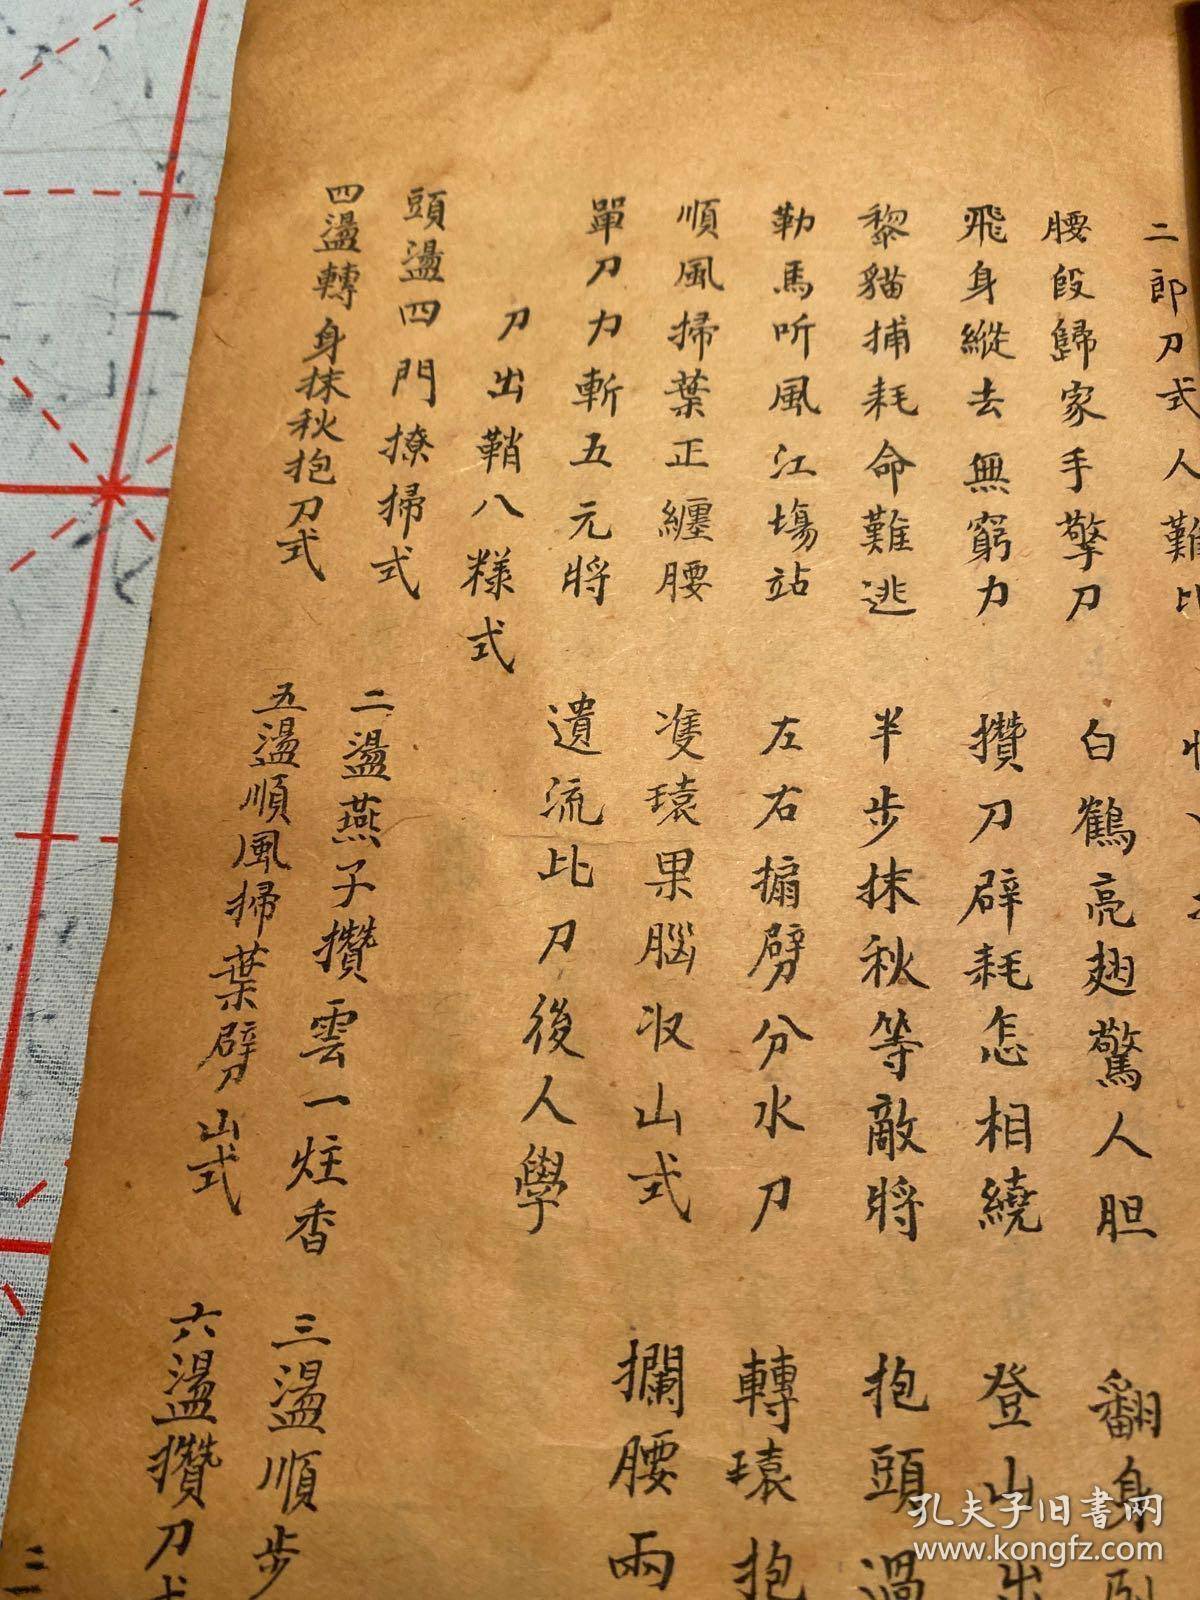 二郎刀式人難比
腰段歸家手擎刀 白鶴亮翅驚人胆 翻身
飛身縱去無窮力 攢刀辟耗怎相繞 登山出
黎貓捕耗命難逃 半步抹秋等敵將 抱頭過
勒馬听風江塲站 左右搧劈分水刀 轉環抱
順風掃葉正纏腰 隻環果腦収山式 攔腰兩
單刀力斬五元將 遺流比刀後人學
刀出鞘八樣式
頭盪四門撩掃式 二盪燕子攢雲一炷香 三盪順步
四盪轉身抹秋抱刀式 五盪順風掃葉劈山式 六盪攢刀式
孔夫子旧书网
www.kongfz.com